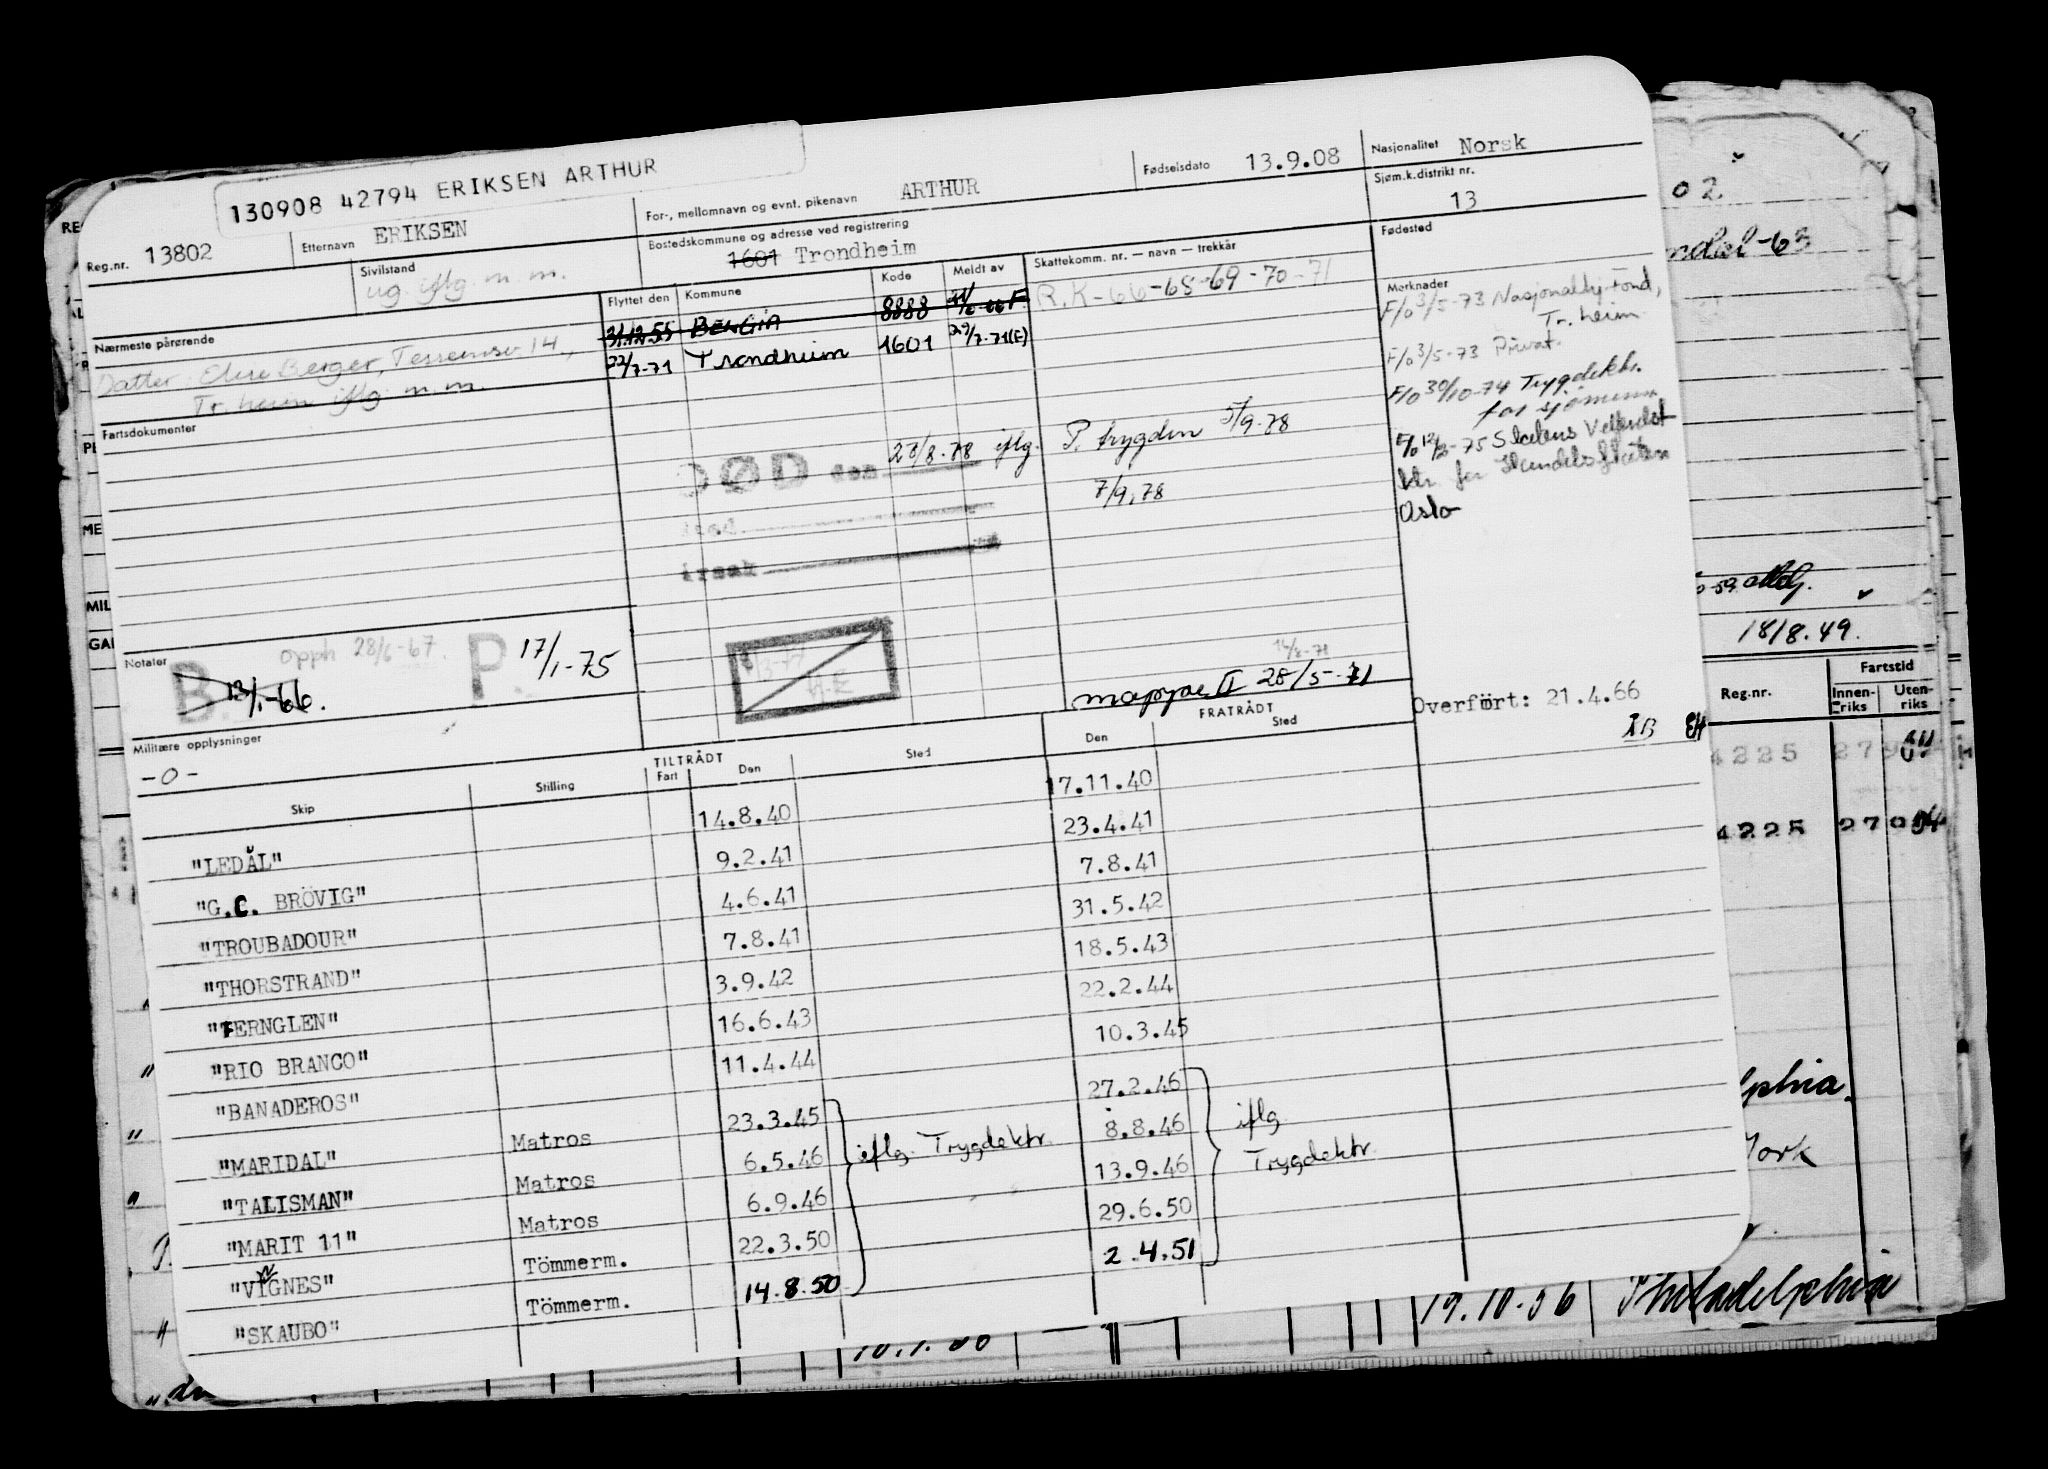 130908 42794 ERIKSEN ARTHUR
Reg.nr. 13802 Etternavn ERIKSEN For-, mellomnavn og evnt. pikenavn ARTHUR Fødselsdato 13.9.08 Nasjonalitet Norsk
Sivilstand ug. iflg. m.m. Bostedskommune og adresse ved registrering 1601 Trondheim Sjøm.k.distrikt nr. 13
Nærmeste pårørende Flyttet den Kommune Kode Meldt av Skattekomm. nr. — navn — trekkår Fødested
31.12.55 BELGIA 8888 F. R.K-66-68-69-70-71 Merknader
Datter: Else Berger, 14, 22/7-71 Trondheim 1601 29/7-71(E)
Tr.heim iflg. m.m.
F/o 3/5-73 Nasjonalby.fond,
Tr.heim
F/o 3/5-73 Privat.
F/o 30/10-74 Trygdektr.
for sjømenn
-75 Statens Velferdsk
ktr. for Handelsflåten
Oslo
Fartsdokumenter
DØD den 28/8-78 iflg. P. trygden 5/9-78
7/9.78
sted
årsak
Notater B. 13/1-66. Opph 28/6-67. P. 17/1-75
14/8-71
mappe II 28/5-71
Overført: 21.4.66
IB EH
Militære opplysninger
-0-
TILTRÅDT FRATRÅDT
Skip Stilling Fart Den Sted Den Sted
"LEDÅL" 14.8.40 17.11.40
"G.C. BRÖVIG" 9.2.41 23.4.41
"TROUBADOUR" 4.6.41 7.8.41
"THORSTRAND" 7.8.41 31.5.42
"FERNGLEN" 3.9.42 18.5.43
"RIO BRANCO" 16.6.43 22.2.44
"BANADEROS" 11.4.44 10.3.45
"MARIDAL" Matros 23.3.45 iflg. Trygdektr. 27.2.46 iflg.
"TALISMAN" Matros 6.5.46 8.8.46 Trygdektr.
"MARIT 11" Matros 6.9.46 13.9.46
"VIGNES" Tömmerm. 22.3.50 29.6.50
"SKAUBO" Tömmerm. 14.8.50 2.4.51
02.
-63
18/8.49.
Fartstid
Reg.nr. Innen-riks Uten-riks
4225 279
4225 270
lphia.
York
19.10.56 Philadelphia